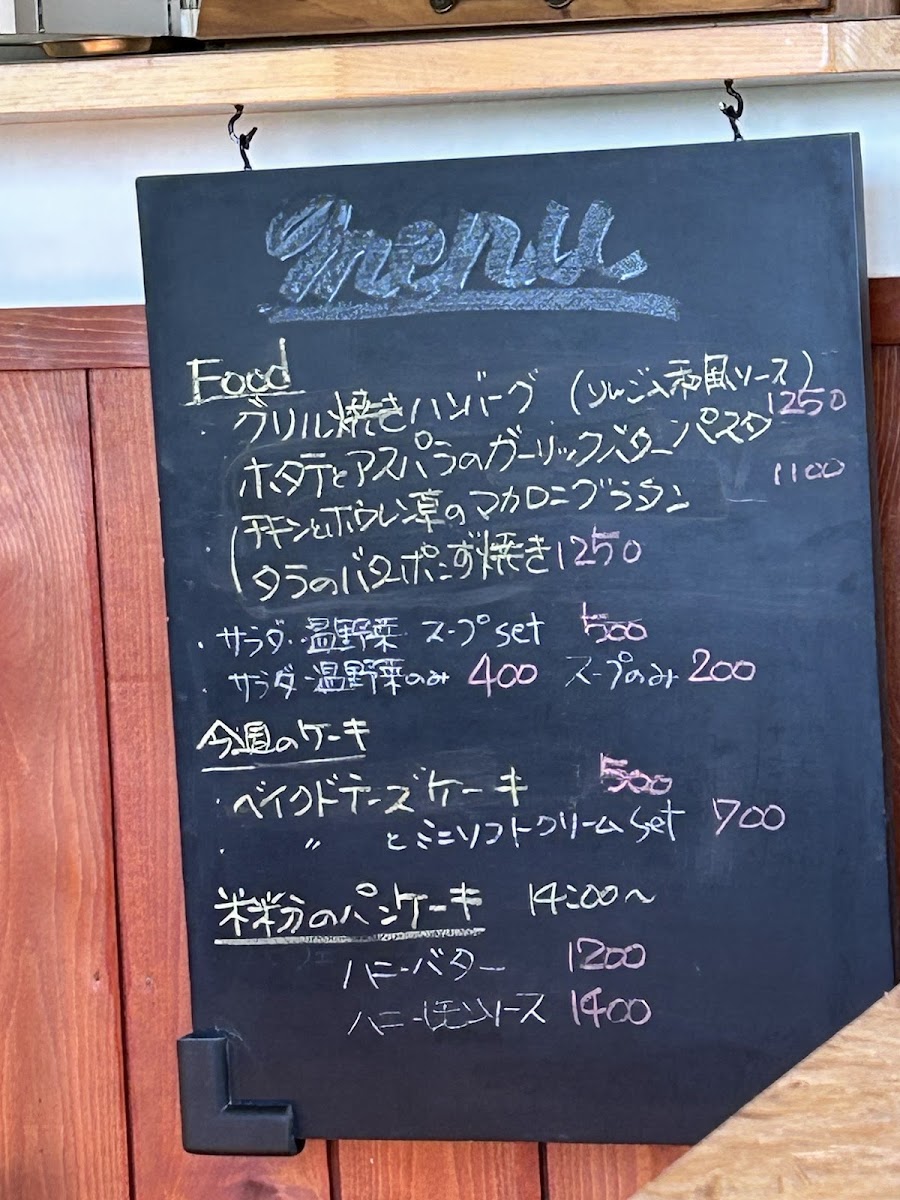 menu
Food
・グリル焼きハンバーグ (りんご入和風ソース) 1250
ホタテとアスパラのガーリックバターパスタ
1100
チキンとホウレン草のマカロニグラタン
・タラのバターポン酢焼き 1250
・サラダ・温野菜 スープset 500
サラダ・温野菜のみ 400 スープのみ 200
今週のケーキ
・ベイクドチーズケーキ 500
・ 〃 とミニソフトクリームset 700
米粉のパンケーキ 14:00〜
ハニーバター 1200
ハニーレモンソース 1400